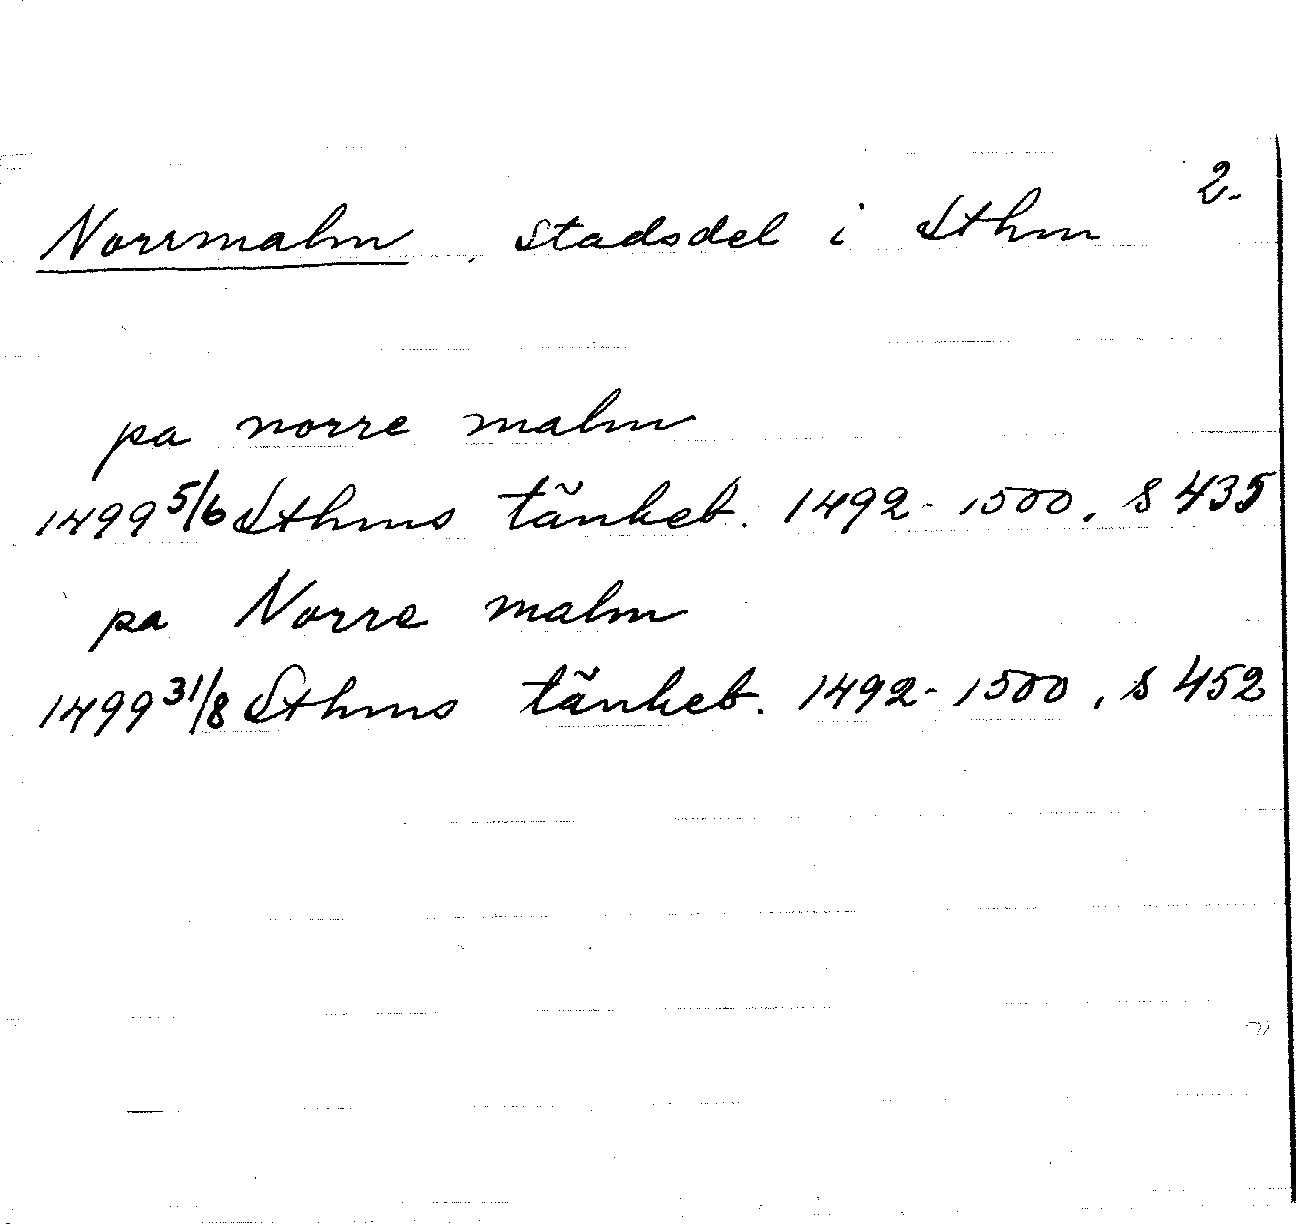 2.
Norrmalm, stadsdel i Sthm
pa norre malm
1499 5/6 Sthms tänkeb. 1492-1500, s 435
pa Norre malm
1499 31/8 Sthms tänkeb. 1492-1500, s 452